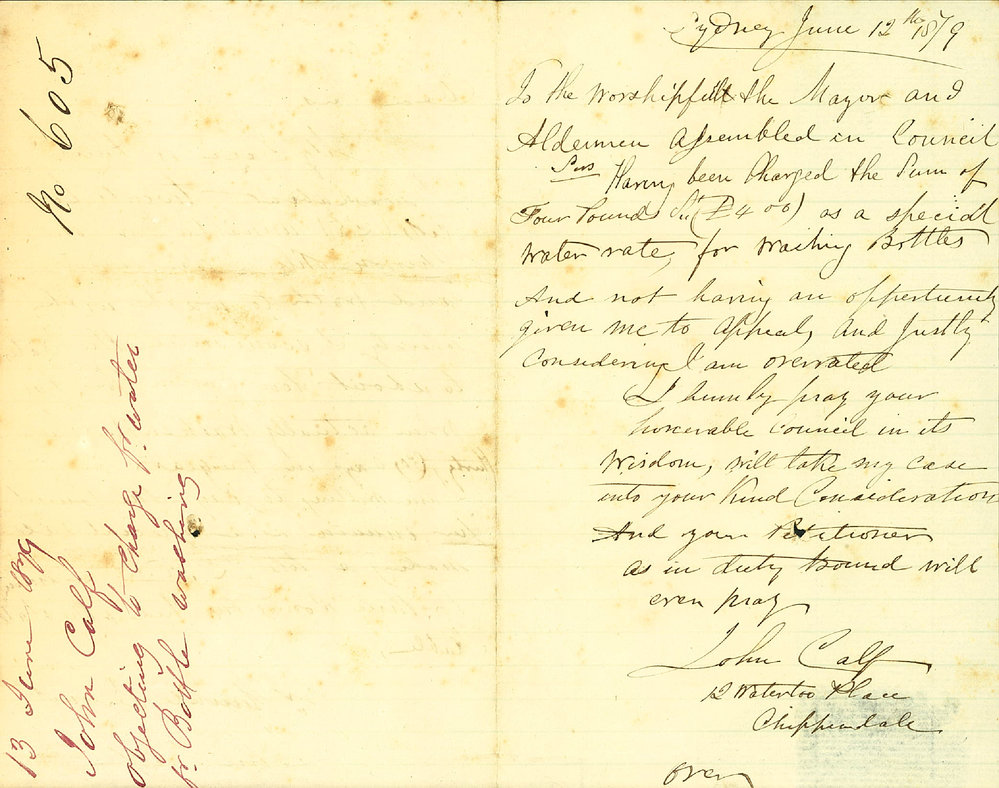 No 605
13 June 1879
John Calf
objecting to charge fr. water
fr. Bottle washing
Sydney June 12th 1879
To the Worshipfull the Mayor and
Aldermen Assembled in Council
Sirs Having been Charged the Sum of
Four Pounds (£4 00) as a special
water rate, for washing Bottles
And not having an opportunity
given me to Appeal, and Justly
Considering I am overrated
I humbly pray your
honerable Council in its
Wisdom, will take my case
into your Kind Consideration
And your Petitioner
as in duty bound will
ever pray
John Calf
12 Waterloo Place
Chippendale
over